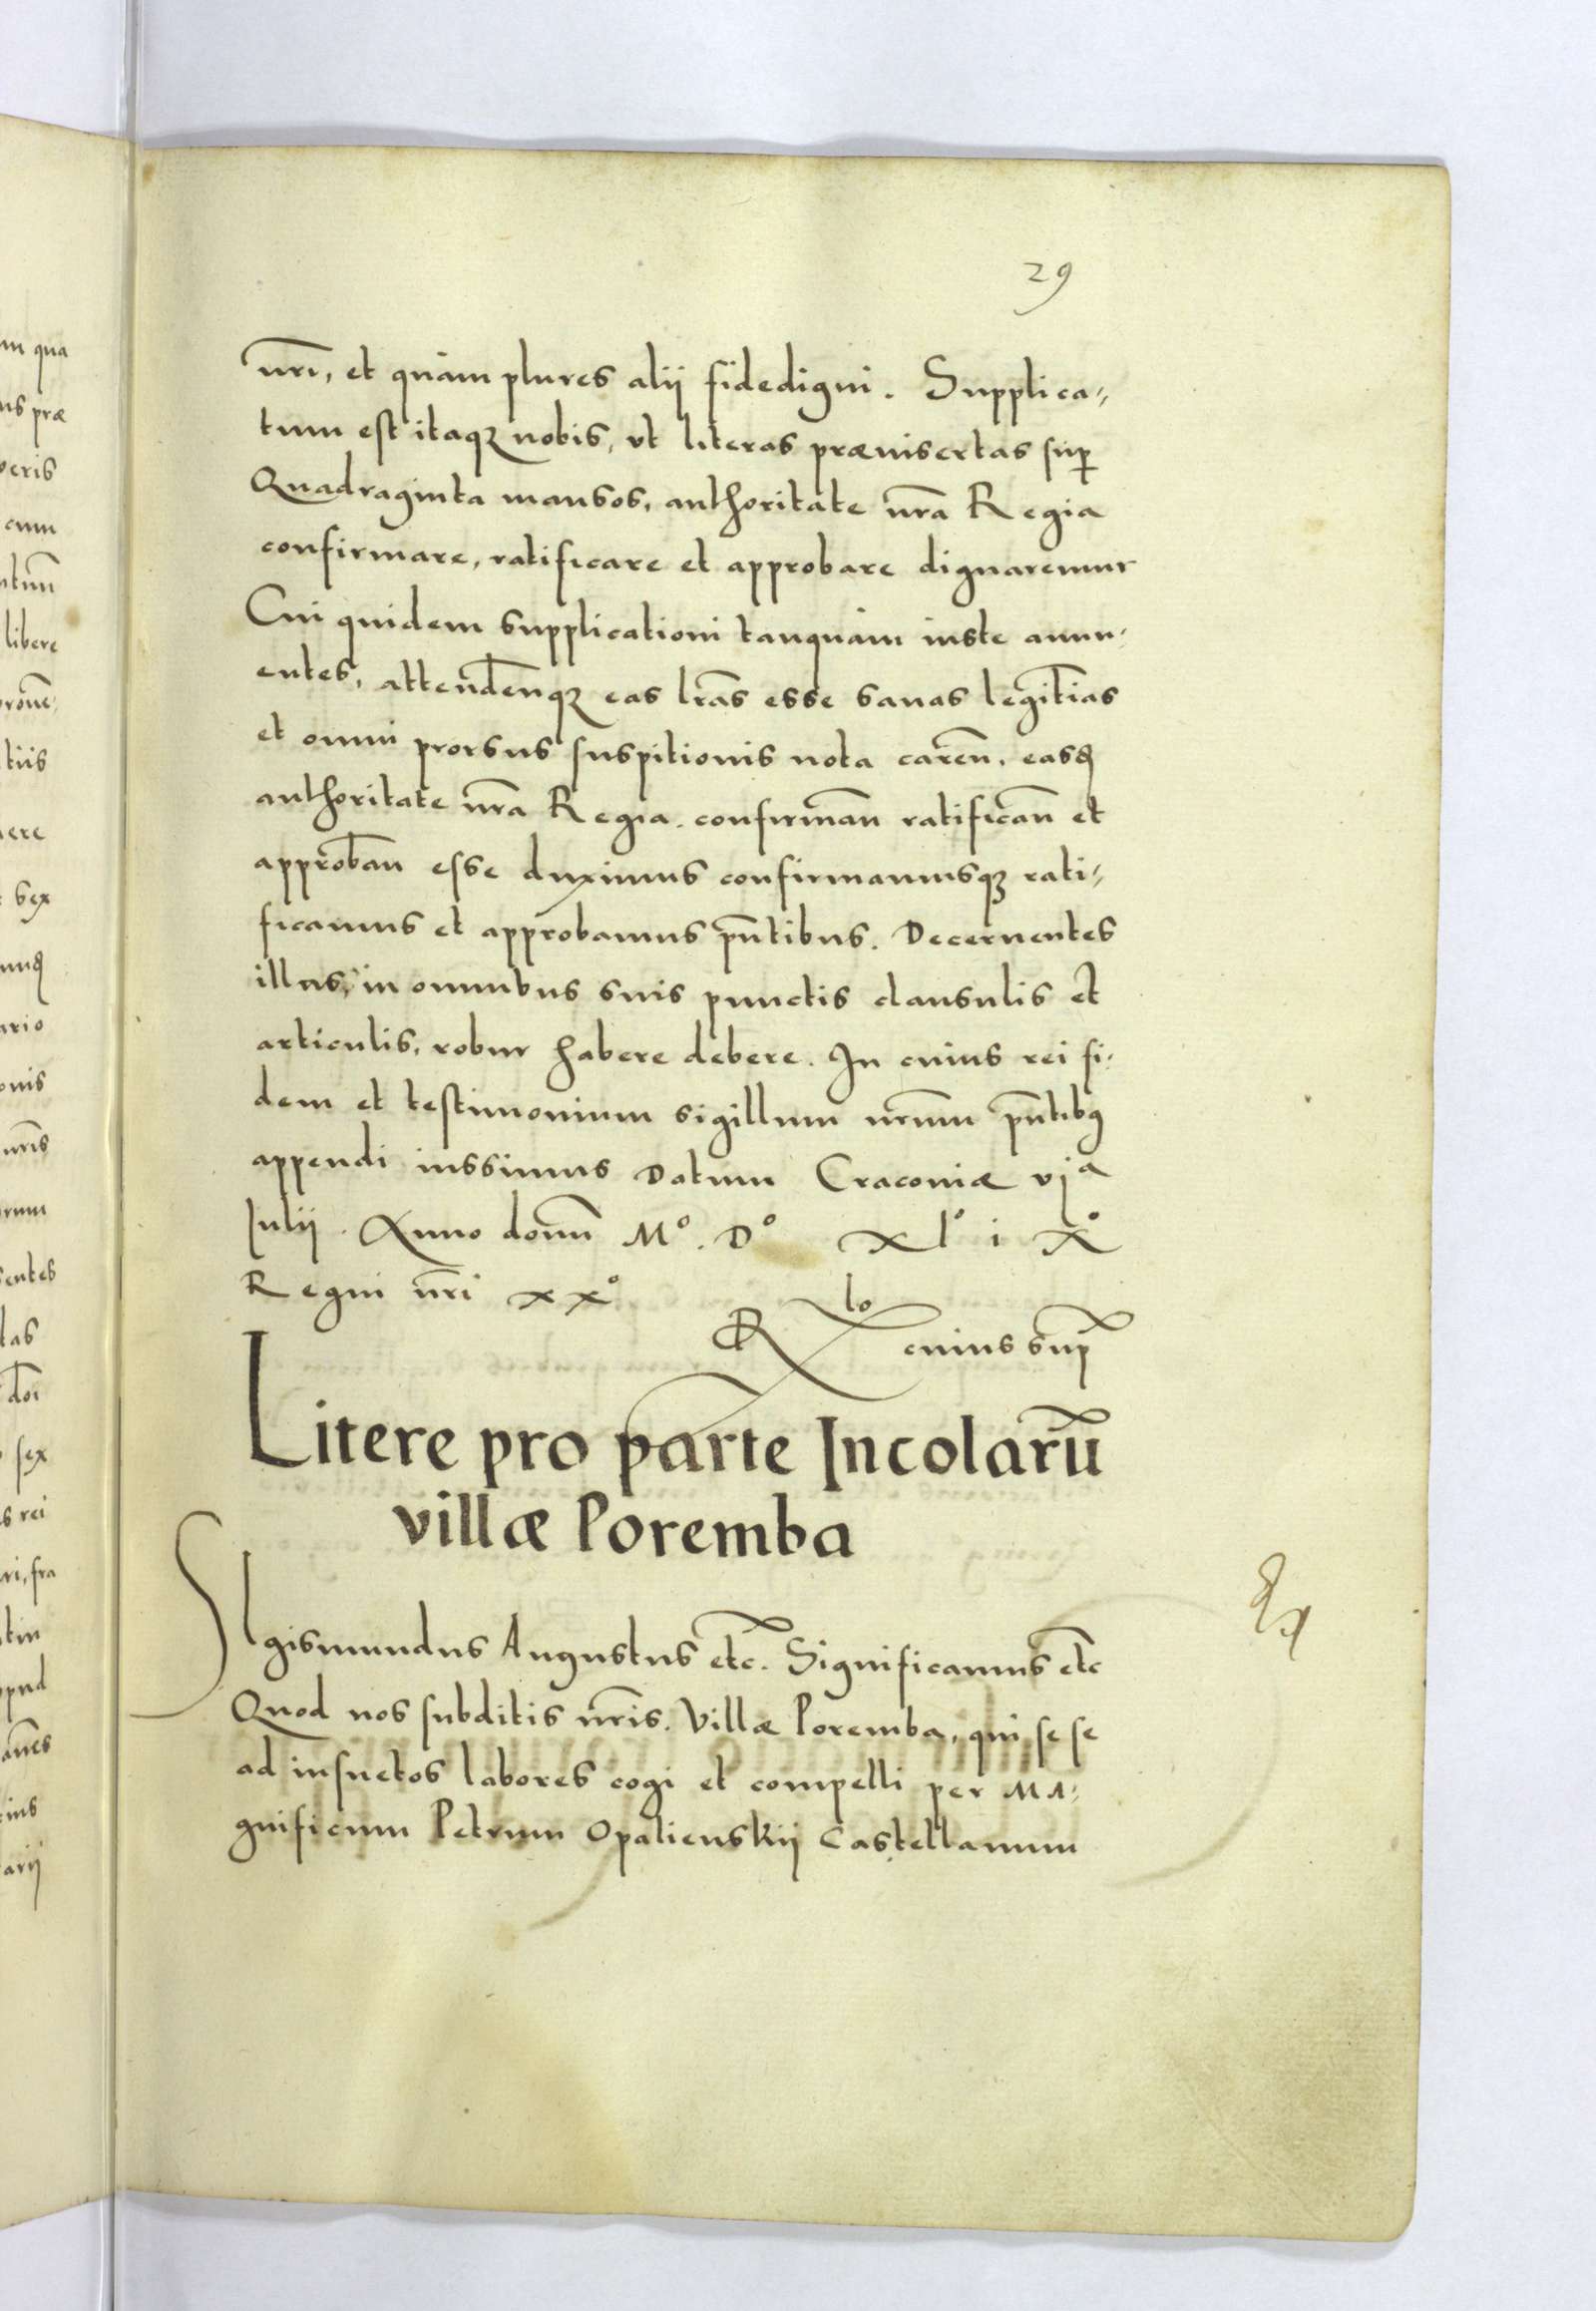 29
nr̃i, et quàm plures alii fidedigni. Supplica-
tum est itaqꝫ nobis, vt literas præinsertas sup̱
Quadraginta mansos, authoritate nr̃a Regia
confirmare, ratificare et approbare dignaremur
Cui quidem supplicationi tanquàm iuste annu-
entes, attendeñqꝫ eas lr̃as esse sanas legitĩas
et omni prorsus suspitionis nota careñ. easqꝫ
authoritate nr̃a Regia. confirmañ ratificañ et
approbañ esse duximus confirmamusqꝫ rati-
ficamus et approbamus pñtibus. Decernentes
illas, in omnibus suis punctis clausulis et
articulis, robur habere debere. In cuius rei fi-
dem et testimonium sigillum nr̃um pñtibꝰ
appendi iussimus Datum Cracoviæ vjᵃ
Iulii. Anno domĩ Mº. Dº xlº i xº
Regni nr̃i xxº
Rlo cuius sup̱
Litere pro parte Incolarũ
villæ Poremba
SIgismundus Augustus etc̃. Significamus etc̃
Quod nos subditis nr̃is. Villæ Poremba, qui se se
ad insuetos labores cogi et compelli per MA-
gnificum Petrum Opalienskij Castellanum